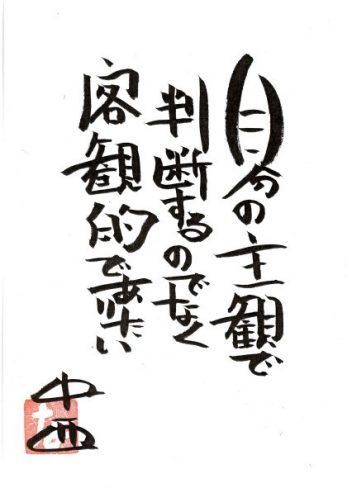 自分の主観で
判断するのでなく
客観的でありたい
中西
な